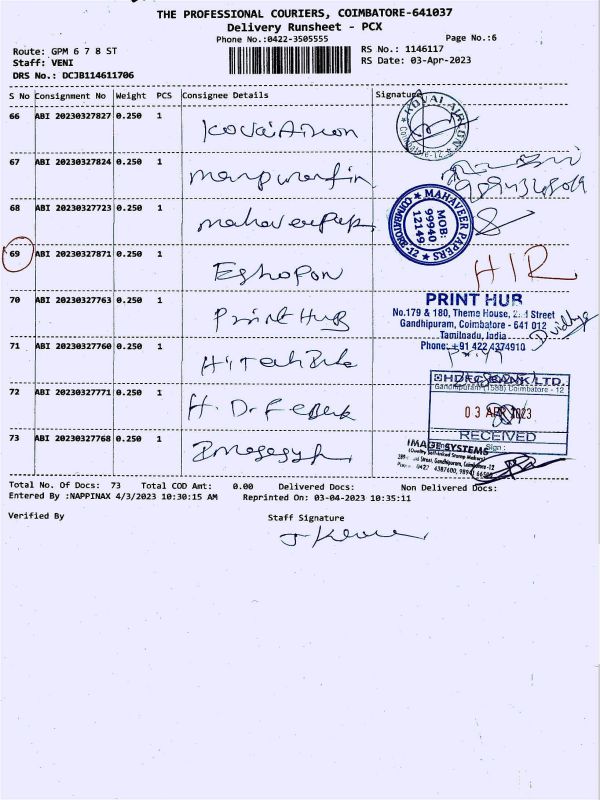 THE PROFESSIONAL COURIERS, COIMBATORE-641037
Delivery Runsheet - PCX
Phone No.:0422-3505555 Page No.:6
Route: GPM 6 7 8 ST RS No.: 1146117
Staff: VENI RS Date: 03-Apr-2023
DRS No.: DCJB114611706
S No Consignment No Weight PCS Consignee Details Signature
66 ABI 20230327827 0.250 1 Kovai Aircon
KOVAI AIRCON
Coimbatore-12
67 ABI 20230327824 0.250 1
68 ABI 20230327723 0.250 1
MAHAVEER PAPERS
MOB:
99940
12149
COIMBATORE-12
69 ABI 20230327871 0.250 1 Eshopon HIR
70 ABI 20230327763 0.250 1 Print Hub
PRINT HUB
No.179 & 180, Theme House, 2nd Street
Gandhipuram, Coimbatore - 641 012
Tamilnadu, India
Phone: +91 422 4374910
71 ABI 20230327760 0.250 1
HDFC BANK LTD.
Gandhipuram (1588) Coimbatore - 12
72 ABI 20230327771 0.250 1
03 APR 2023
RECEIVED
Sign :
73 ABI 20230327768 0.250 1
IMAGE SYSTEMS
(Quality Self-Inked Stamp Makers)
Street, Gandhipuram, Coimbatore-12
Total No. Of Docs: 73 Total COD Amt: 0.00 Delivered Docs: Non Delivered Docs:
Entered By :NAPPINAX 4/3/2023 10:30:15 AM Reprinted On: 03-04-2023 10:35:11
Verified By Staff Signature